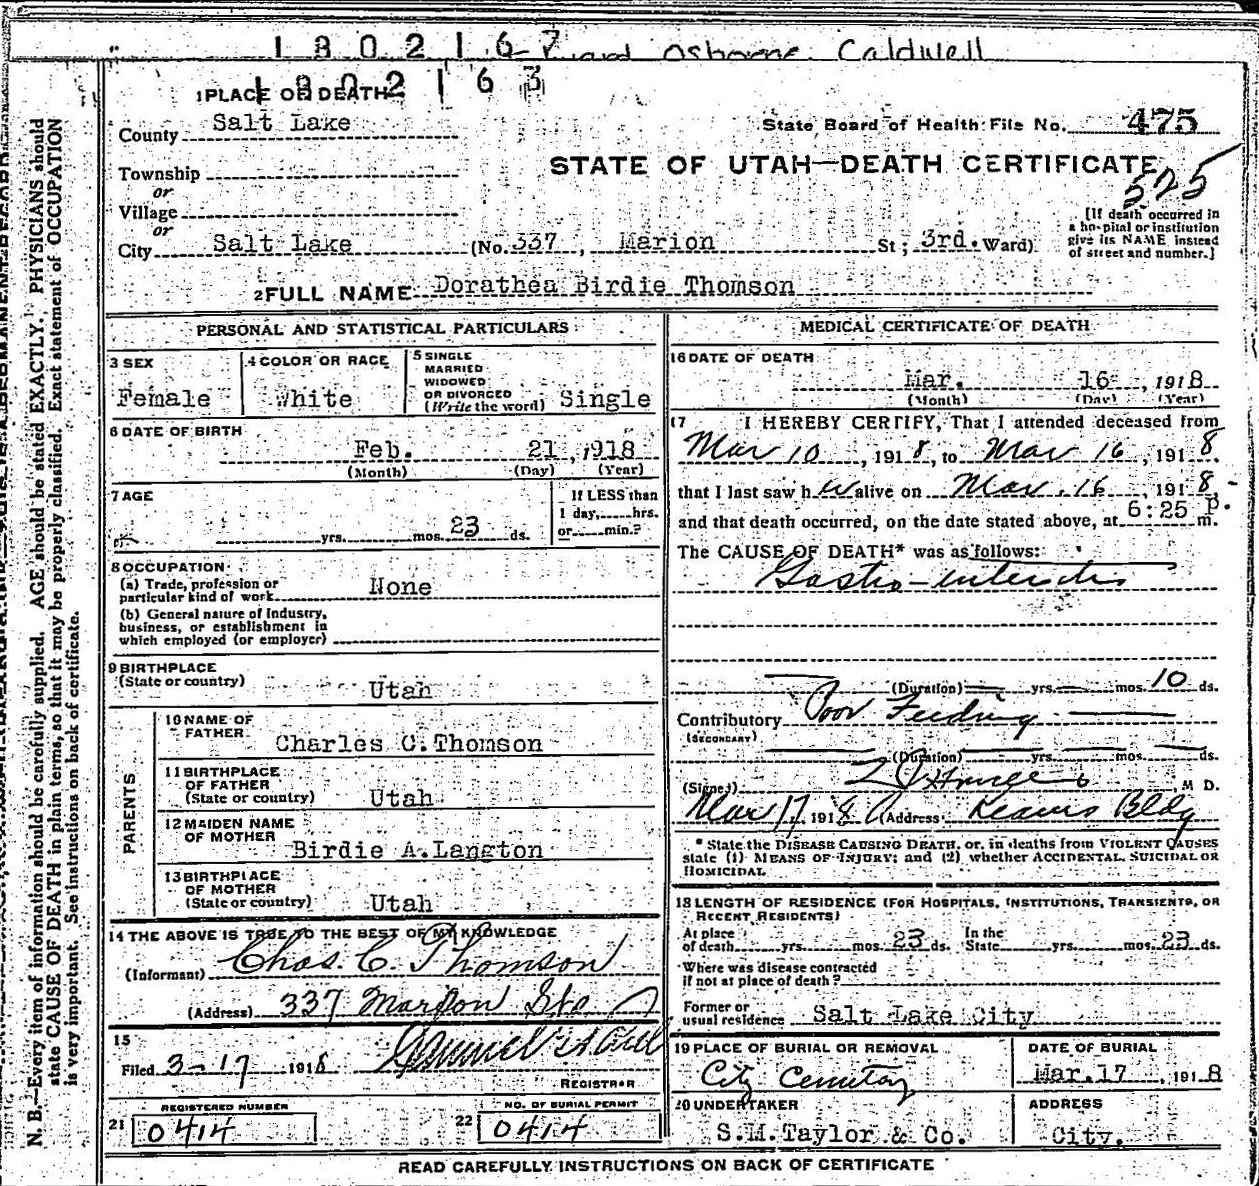 1802167 Osborne Caldwell
1802163
1 PLACE OF DEATH
County Salt Lake
State Board of Health File No. 475
STATE OF UTAH—DEATH CERTIFICATE
525
Township
or
Village
or
City Salt Lake (No. 337, Marion St; 3rd. Ward)
[If death occurred in
a hospital or institution
give its NAME instead
of street and number.]
2 FULL NAME Dorathea Birdie Thomson
PERSONAL AND STATISTICAL PARTICULARS
3 SEX
Female
4 COLOR OR RACE
White
5 SINGLE
MARRIED
WIDOWED
OR DIVORCED
(Write the word) Single
6 DATE OF BIRTH
Feb. 21, 1918
(Month) (Day) (Year)
7 AGE
yrs. mos. 23 ds.
If LESS than
1 day, hrs.
or min.?
8 OCCUPATION
(a) Trade, profession or
particular kind of work None
(b) General nature of industry,
business, or establishment in
which employed (or employer)
9 BIRTHPLACE
(State or country) Utah
PARENTS
10 NAME OF
FATHER
Charles C. Thomson
11 BIRTHPLACE
OF FATHER
(State or country) Utah
12 MAIDEN NAME
OF MOTHER
Birdie A. Langton
13 BIRTHPLACE
OF MOTHER
(State or country) Utah
14 THE ABOVE IS TRUE TO THE BEST OF MY KNOWLEDGE
(Informant) Chas. C. Thomson
(Address) 337 Marion St
15
Filed 3-17 1918
REGISTRAR
REGISTERED NUMBER
21 0414
NO. OF BURIAL PERMIT
22 0414
MEDICAL CERTIFICATE OF DEATH
16 DATE OF DEATH
Mar. 16, 1918
(Month) (Day) (Year)
17 I HEREBY CERTIFY, That I attended deceased from
Mar 10, 1918, to Mar 16, 1918.
that I last saw her alive on Mar. 16, 1918,
and that death occurred, on the date stated above, at 6:25 P. m.
The CAUSE OF DEATH* was as follows:
Gastro-enteritis
(Duration) yrs. mos. 10 ds.
Contributory Poor Feeding
(SECONDARY)
(Duration) yrs. mos. ds.
(Signed) M D.
Mar 17 1918 (Address) Kearns Bldg
* State the DISEASE CAUSING DEATH, or, in deaths from VIOLENT CAUSES
state (1) MEANS OF INJURY; and (2) whether ACCIDENTAL, SUICIDAL OR
HOMICIDAL
18 LENGTH OF RESIDENCE (FOR HOSPITALS, INSTITUTIONS, TRANSIENTS, OR
RECENT RESIDENTS)
At place
of death yrs. mos. 23 ds. In the
State yrs. mos. 23 ds.
Where was disease contracted
if not at place of death?
Former or
usual residence Salt Lake City
19 PLACE OF BURIAL OR REMOVAL
City Cemetery
DATE OF BURIAL
Mar. 17, 1918
20 UNDERTAKER
S.M. Taylor & Co.
ADDRESS
City.
READ CAREFULLY INSTRUCTIONS ON BACK OF CERTIFICATE
N. B.—Every item of information should be carefully supplied. AGE should be stated EXACTLY. PHYSICIANS should
state CAUSE OF DEATH in plain terms, so that it may be properly classified. Exact statement of OCCUPATION
is very important. See instructions on back of certificate.